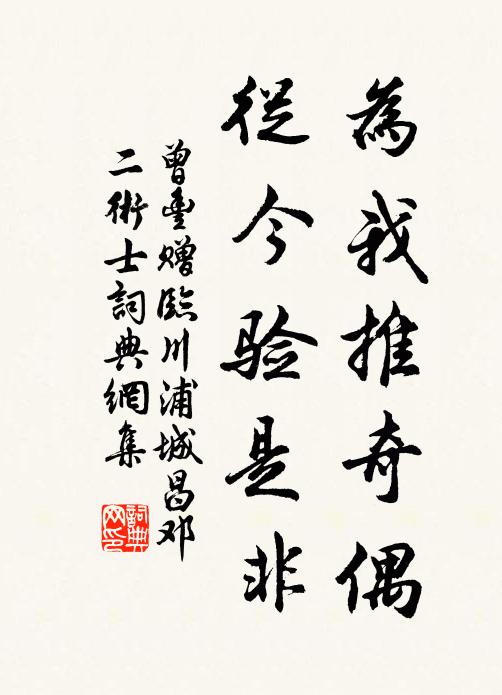 為我推奇偶
從今验是非
曾豊赠臨川浦城昌邓
二術士詞典網集
詞典网印